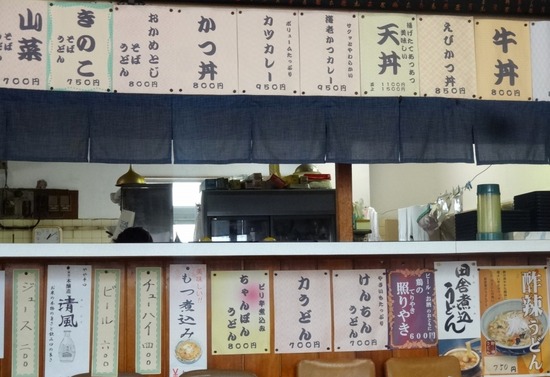 牛丼
８００円
えびかつ丼
８５０円
揚げたてあつあつ
美味しい
天丼
上１５００円
並１１００円
サクッとやわらかい
海老かつカレー
９５０円
ボリュームたっぷり
カツカレー
９５０円
かつ丼
８００円
おかめとじ
そば
うどん
８００円
きのこ
そば
うどん
７５０円
山菜
そば
うどん
７００円
酢辣うどん
750円
田舎煮込
うどん
ビール・お酒のおともに
鶏の
てりやき
照りやき
600円
やさいもたっぷり
けんちん
うどん
７００円
力うどん
７００円
ピリ辛煮込み
ちゃんぽん
うどん
８００円
美味しい
もつ煮込み
チューハイ 四〇〇
ビール 六〇〇
清風
ジュース 二〇〇